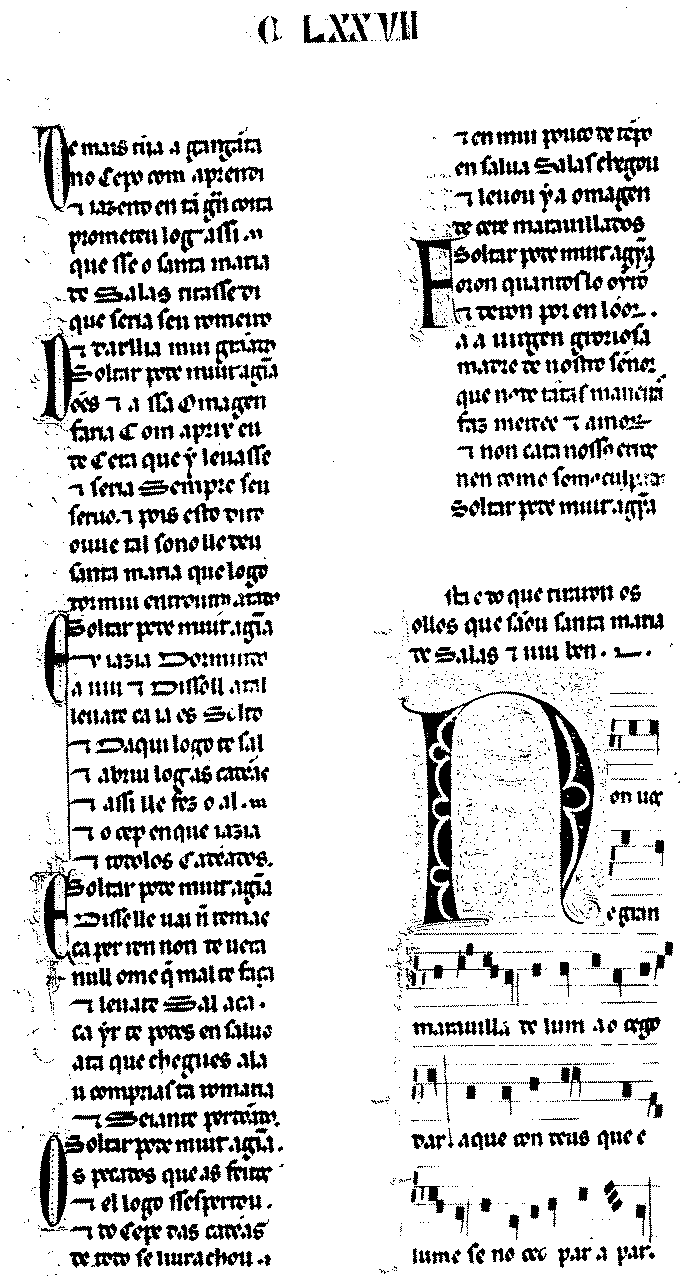 C LXXVII
De mais tiia a gargãta
no Cepo com aprendi
⁊ iazendo en tã grã coita
prometeu log assi
que sse o santa maria
de Salas tirasse di
que seria seu romeiro
⁊ darllia mui graado
Soltar pode muit agỹa
Dões ⁊ a ssa Omagen
faria Com aprix eu
de Cera que ỹ leuasse
⁊ seria Sempre seu
seruo. ⁊ pois esto dito
ouue tal sono lle deu
santa maria que logo
Soltar pode muit agỹa
E iazia Dormindo
a uiu ⁊ Dissoll atal
leuate ca ia es Solto
⁊ Daqui logo te sal
⁊ abriu log as cadẽas
⁊ assi lle fez o al
⁊ o cep en que iazia
⁊ todolos Cadẽados.
Soltar pode muit agỹa
E Disse lle uai ñ temas
ca per ren non te uerá
null ome q̃ mal te faça
⁊ leuate Sal aca.
ca ỹr te podes en saluo
ata que chegues ala
u comprias ta romaria
Soltar pode muit agỹa.
Os pecados que as feitos
⁊ el logo ssespertou.
⁊ do Cepo das cadẽas
de todo se liurachou
⁊ en mui pouco de tẽpo
en salua Salas chegou
⁊ leuou ỹ a omagen
de cera marauillados
Soltar pode muit agỹa
Foron quantos lo oyrõ
⁊ deron por en lóor.
a a uirgen groriosa
madre de nostro señor
que
faz mercee ⁊ amor
⁊ non cata nosso erros
nen como somos culpados
Soltar pode muit agỹa
Esta e do que tiraron os
ollos que sãou santa maria
de Salas ⁊ uiu ben.
Non uos
e gran
marauilla de lum ao cego
dar. a que con deus que e
lume se no ceo par a par.